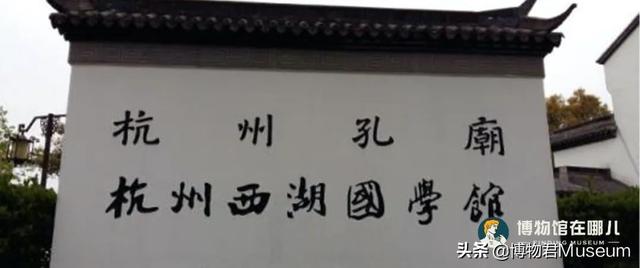 杭州孔廟
杭州西湖國學館
博物馆在哪儿
头条 @博物君Museum